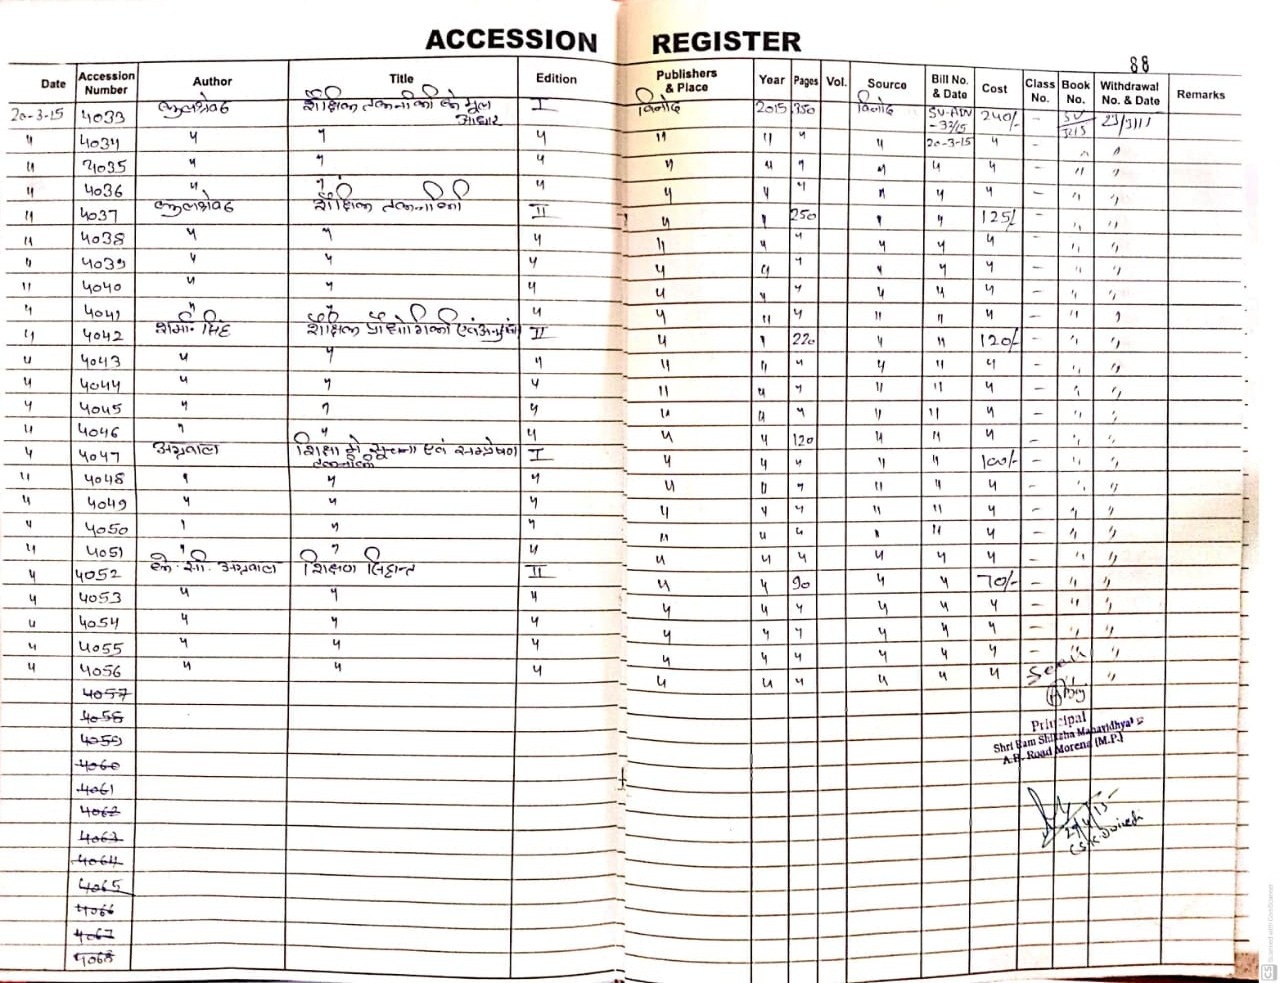 ACCESSION REGISTER
88
Date Accession Number Author Title Edition Publishers & Place Year Pages Vol. Source Bill No. & Date Cost Class No. Book No. Withdrawal No. & Date Remarks
20-3-15 4033 कुलश्रेष्ठ शैक्षिक तकनीकी के मूल आधार I विनोद 2015 350 विनोद 240/- -
" 4034 " " " " " " " 20-3-15 "
" 4035 " " " " " " " " "
" 4036 " " " " " " " " "
" 4037 कुलश्रेष्ठ शैक्षिक तकनीकी II " " 250 " " 125/-
" 4038 " " " " " " " " "
" 4039 " " " " " " " " "
" 4040 " " " " " " " " "
" 4041 " " " " " " " " "
" 4042 शर्मा. सिंह शैक्षिक प्रौद्योगिकी एवं II " " 220 " " 120/-
" 4043 " " " " " " " " "
" 4044 " " " " " " " " "
" 4045 " " " " " " " " "
" 4046 " " " " " 120 " " "
" 4047 अग्रवाल शिक्षा में सूचना एवं सम्प्रेषण तकनीकी I " " " " " 100/-
" 4048 " " " " " " " " "
" 4049 " " " " " " " " "
" 4050 " " " " " " " " "
" 4051 " " " " " " " " "
" 4052 के. सी. अग्रवाल शिक्षण सिद्धान्त II " " 90 " " 70/-
" 4053 " " " " " " " " "
" 4054 " " " " " " " " "
" 4055 " " " " " " " " "
" 4056 " " " " " " " " "
4057
4058
4059
4060
4061
4062
4063
4064
4065
4066
4067
4068
Principal
Shri Ram Shiksha Mahavidhyalaya
A.B. Road Morena (M.P.)
CS Scanned with CamScanner